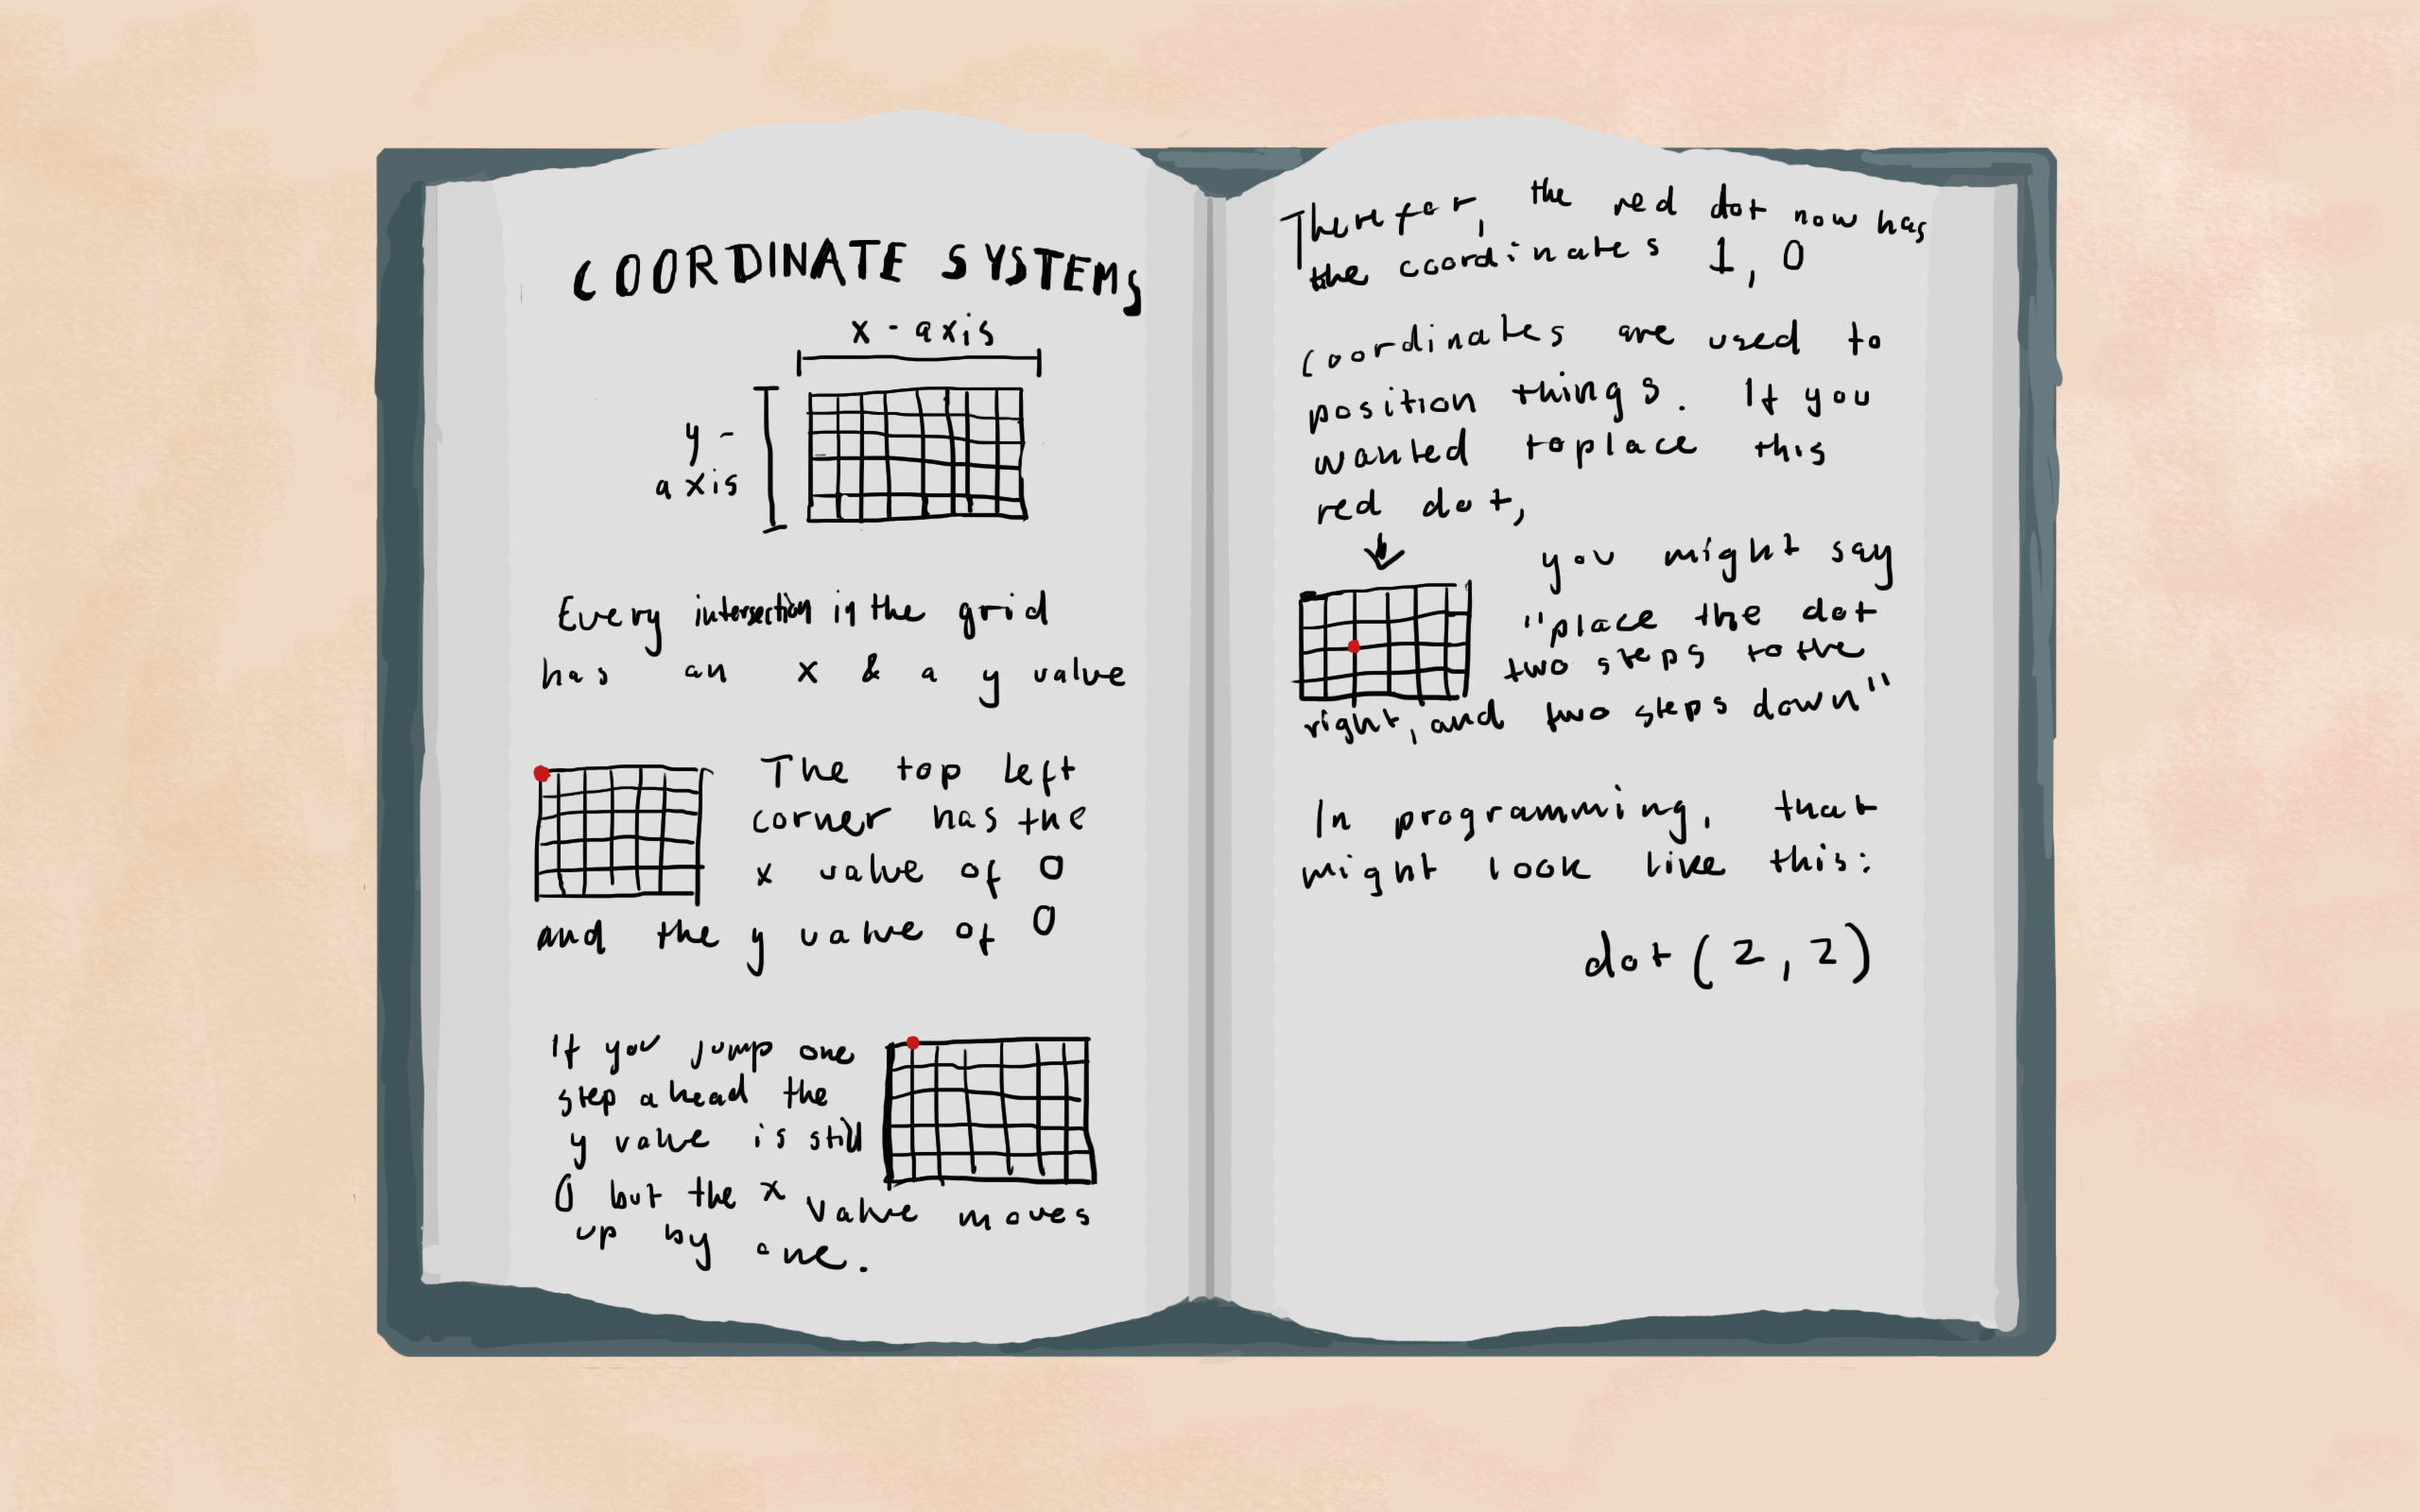 COORDINATE SYSTEMS
x - axis
y -
axis
Every intersection in the grid
has an x & a y value
The top left
corner has the
x value of 0
and the y value of 0
If you jump one
step ahead the
y value is still
0 but the x value moves
up by one.
Therefor, the red dot now has
the coordinates 1, 0
Coordinates are used to
position things. If you
wanted to place this
red dot,
you might say
"place the dot
two steps to the
right, and two steps down"
In programming, that
might look like this:
dot (2, 2)